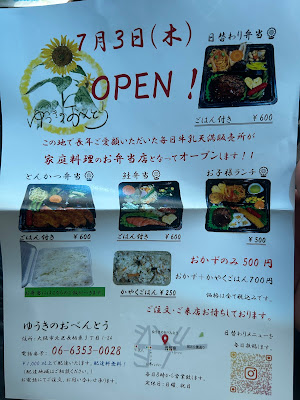 7月3日(木)
OPEN!
日替わり弁当
ゆうきのおべんとう
ごはん付き ¥600
この地で長年ご愛顧いただいた毎日牛乳天満販売所が
家庭料理のお弁当店となってオープンします!!
とんかつ弁当
鮭弁当
お子様ランチ
ごはん付き ¥600
ごはん付き ¥600
¥500
かやくごはん ¥250
おかずのみ 500円
おかず+かやくごはん700円
価格は全て税込みです。
ご注文・ご来店お待ちしております。
ゆうきのおべんとう
電話番号: 06-6353-0028
日替わりメニューを
毎日投稿します。
定休日:日曜、祝日